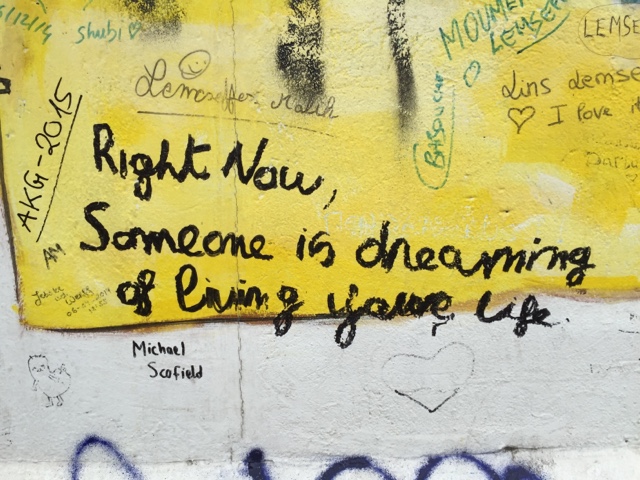 6/12/4
shubi
MOUMEN
LEMSEF
LEMSE
Lins Lemse
I love
BABOUCHE
AKG-2015
Right Now,
Someone is dreaming
of living youre life.
AM
Michael
Scofield